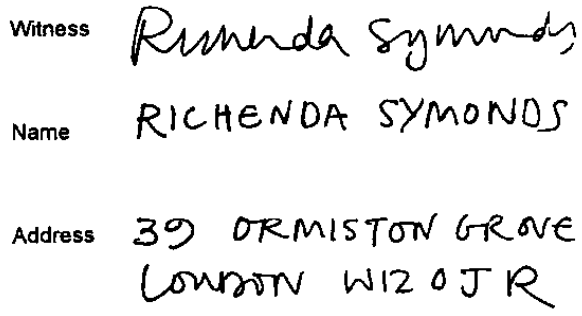 Witness Richenda Symonds
Name RICHENDA SYMONDS
Address 39 ORMISTON GROVE
LONDON W12 0JR